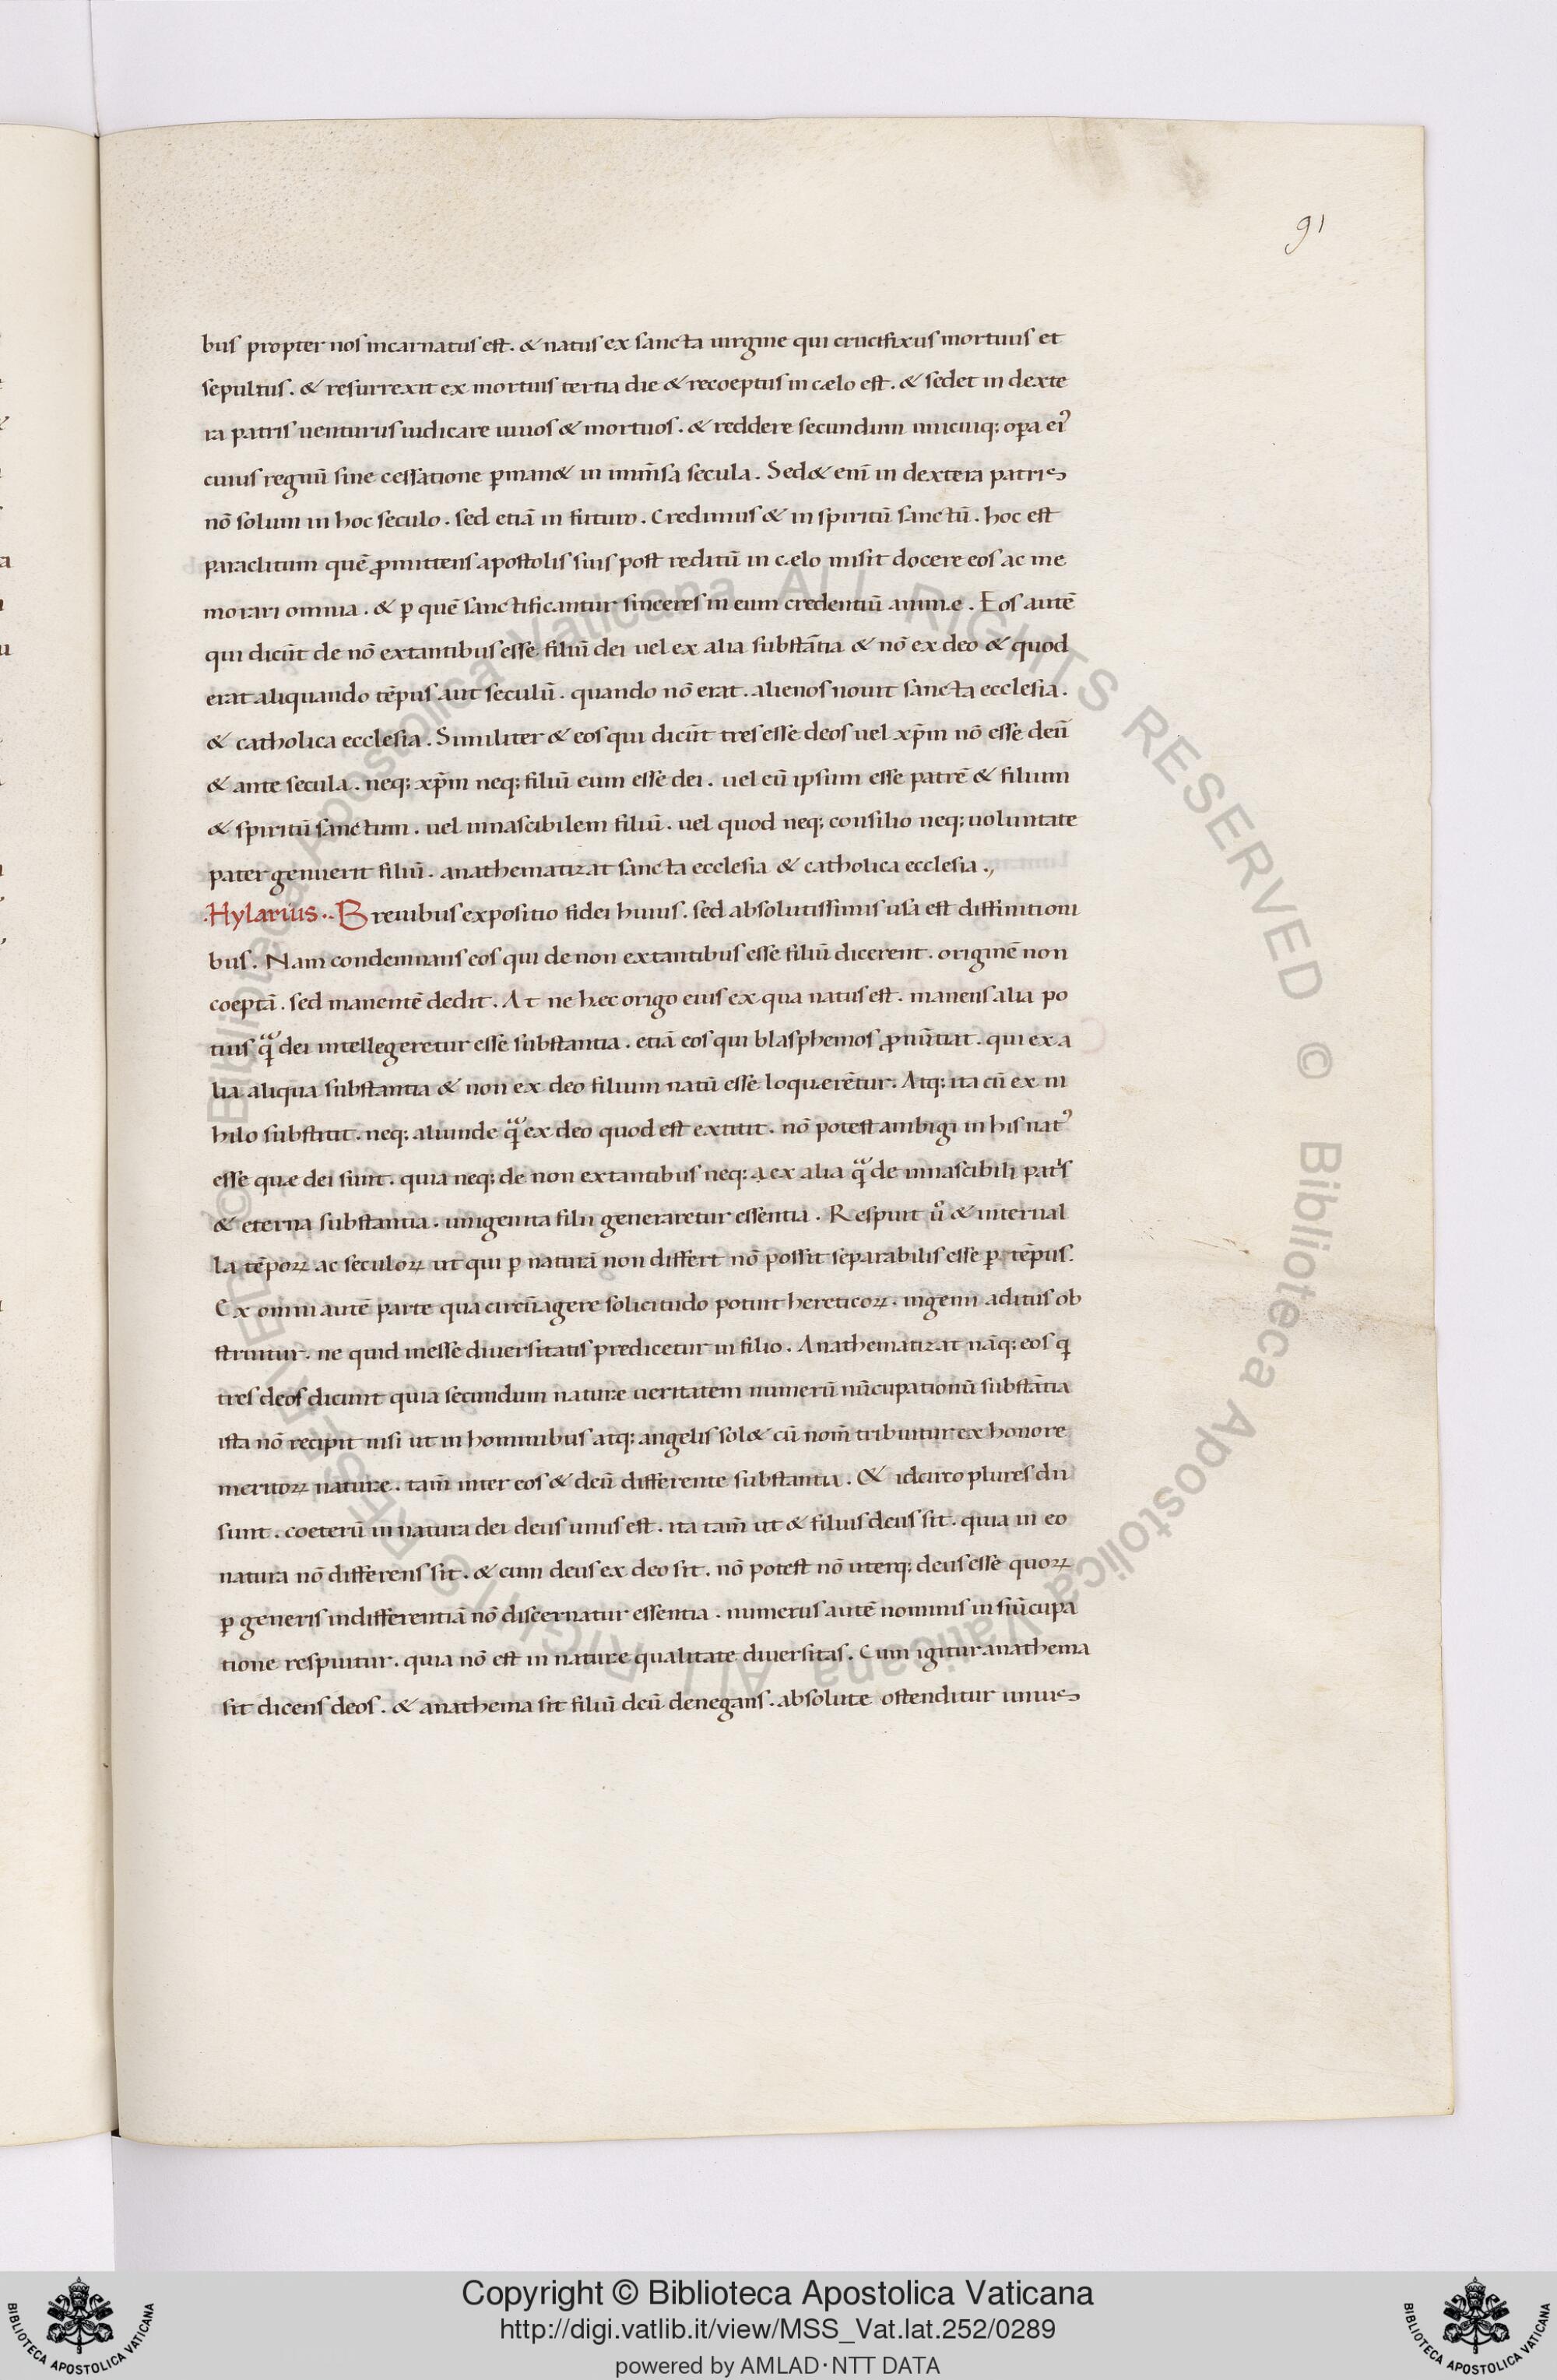 91
bus propter nos incarnatus est. & natus ex sancta uirgine qui crucifixus mortuus et
sepultus. & resurrexit ex mortuis tertia die & recoeptus in cælo est. & sedet in dexte
ra patris uenturus iudicare uiuos & mortuos. & reddere secundum unicuiq; oꝑa ei᾿
cuius regnū sine cessatione ꝑman& in inm̄sa secula. Sed& enī in dextera patris
nō solum in hoc seculo. sed etiā in futuro. Credimus & in spiritū sanctū. hoc est
paraclitum quē ꝓmittens apostolis suis post reditū in cælo misit docere eos ac me
morari omnia. & ꝑ quē sanctificantur sinceres in eum credentiū animæ. Eos autē
qui dicūt de nō extantibus esse filiū dei uel ex alia substātia & nō ex deo & quod
erat aliquando tēpus aut seculū. quando nō erat. alienos nouit sancta ecclesia.
& catholica ecclesia. Similiter & eos qui dicūt tres esse deos uel xp̄m nō esse deū
& ante secula. neq; xp̄m neq; filiū eum esse dei. uel eū ipsum esse patrē & filium
& spiritū sanctum. uel innascibilem filiū. uel quod neq; consilio neq; uoluntate
pater genuerit filiū. anathematizat sancta ecclesia & catholica ecclesia.,
.Hylarius.. Breuibus expositio fidei huius. sed absolutissimis usa est diffinitioni
bus. Nam condemnans eos qui de non extantibus esse filiū dicerent. originē non
coeptā. sed manentē dedit. At ne hæc origo eius ex qua natus est. manens alia po
tius qᷓ dei intellegeretur esse substantia. etiā eos qui blasphemos ꝓnūtiat. qui ex a
lia aliqua substantia & non ex deo filium natū esse loquerētur. Atq; ita cū ex ni
hilo substitit. neq; aliunde qᷓ ex deo quod est extitit. nō potest ambigi in his nat᾿
esse quæ dei sunt. quia neq; de non extantibus neq; ex alia qᷓ de innascibili pat͛s
& eterna substantia. unigenita filii generaretur essentia. Respuit u᷎ & interual
la tēpoꝝ ac seculoꝝ ut qui ꝑ naturā non differt nō possit separabilis esse ꝑ tēpus.
Ex omni autē parte qua circūagere solicitudo potuit hereticoꝝ. ingenii aditus ob
struitur. ne quid inesse diuersitatis predicetur in filio. Anathematizat nāq; eos q̣
tres deos dicunt quia secundum naturæ ueritatem numerū nūcupationū substātia
ista nō recipit nisi ut in hominibus atq; angelis sol& cū nom̄ tribuitur ex honore
meritoꝝ naturæ. tam̄ inter eos & deū differente substantia. & idcirco plures dii
sunt. coeterū in natura dei deus unus est. ita tam̄ ut & filius deus sit. quia in eo
natura nō differens sit. & cum deus ex deo sit. nō potest nō uterq; deus esse quoꝝ
ꝑ generis indifferentiā nō discernatur essentia. numerus autē nominis in nūcupa
tione respuitur. quia nō est in naturæ qualitate diuersitas. Cum igitur anathema
sit dicens deos. & anathema sit filiū deū denegans. absolutæ ostenditur unius
© Biblioteca Apostolica Vaticana ALL RIGHTS RESERVED © Biblioteca Apostolica Vaticana ALL RIGHTS RESERVED
Copyright © Biblioteca Apostolica Vaticana
http://digi.vatlib.it/view/MSS_Vat.lat.252/0289
powered by AMLAD·NTT DATA
BIBLIOTECA APOSTOLICA VATICANA
BIBLIOTECA APOSTOLICA VATICANA